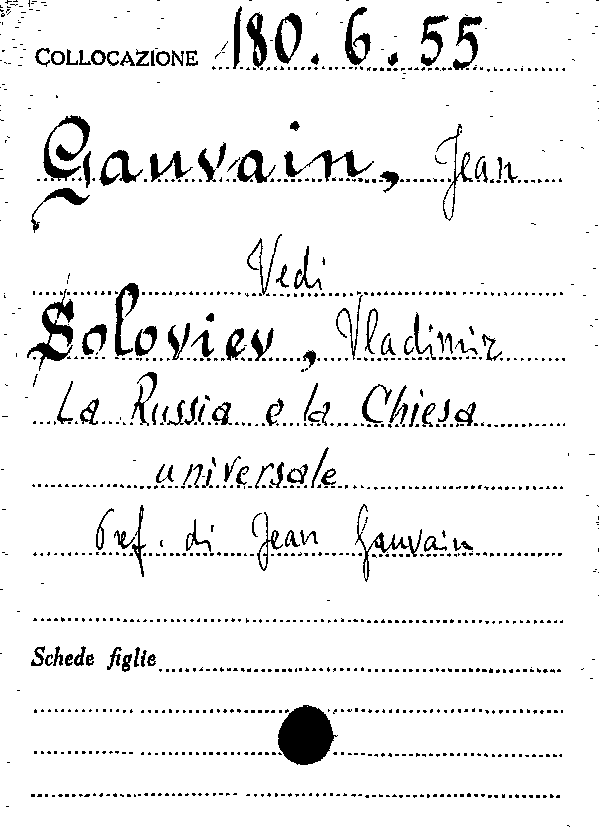 COLLOCAZIONE 180.6.55
Gauvain, Jean
Vedi
Soloviev, Vladimir
La Russia e la Chiesa
universale
Pref. di Jean Gauvain
Schede figlie